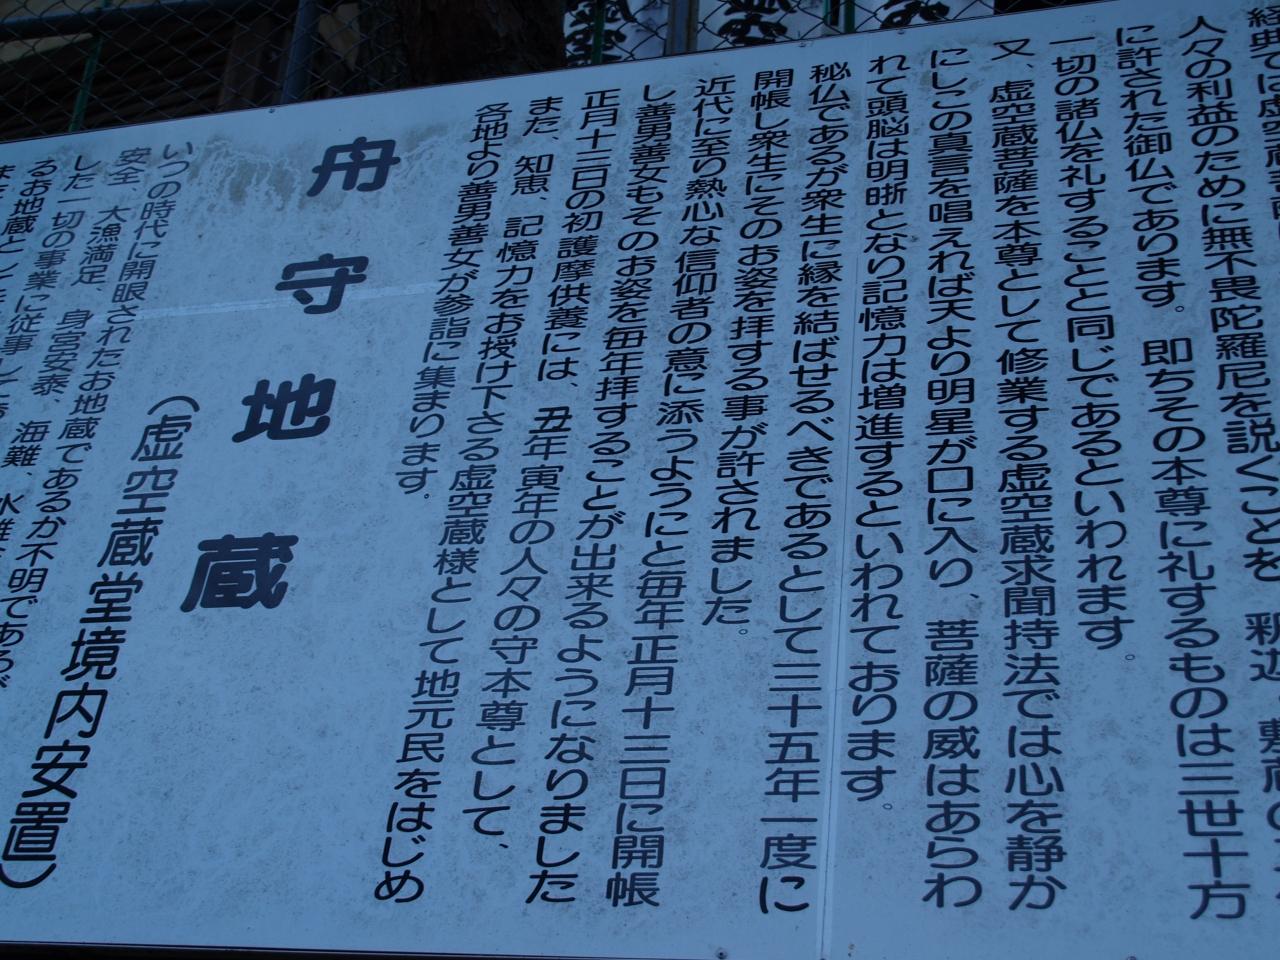 経典では虚空蔵菩薩
人々の利益のために無不畏陀羅尼を説くことを、釈迦
に許された御仏であります。即ちその本尊に礼するものは三世十方
一切の諸仏を礼することと同じであるといわれます。
又、虚空蔵菩薩を本尊として修業する虚空蔵求聞持法では心を静か
にしこの真言を唱えれば天より明星が口に入り、菩薩の威はあらわ
れて頭脳は明晰となり記憶力は増進するといわれております。
秘仏であるが衆生に縁を結ばせるべきであるとして三十五年一度に
開帳し衆生にそのお姿を拝する事が許されました。
近代に至り熱心な信仰者の意に添うようにと毎年正月十三日に開帳
し善男善女もそのお姿を毎年拝することが出来るようになりました
正月十三日の初護摩供養には、丑年寅年の人々の守本尊として、
また、知恵、記憶力をお授け下さる虚空蔵様として地元民をはじめ
各地より善男善女が参詣に集まります。
舟守地蔵
(虚空蔵堂境内安置)
いつの時代に開眼されたお地蔵であるか不明であるが
安全、大漁満足、身宮安泰、海難、水難
した一切の事業に従事して
るお地蔵として